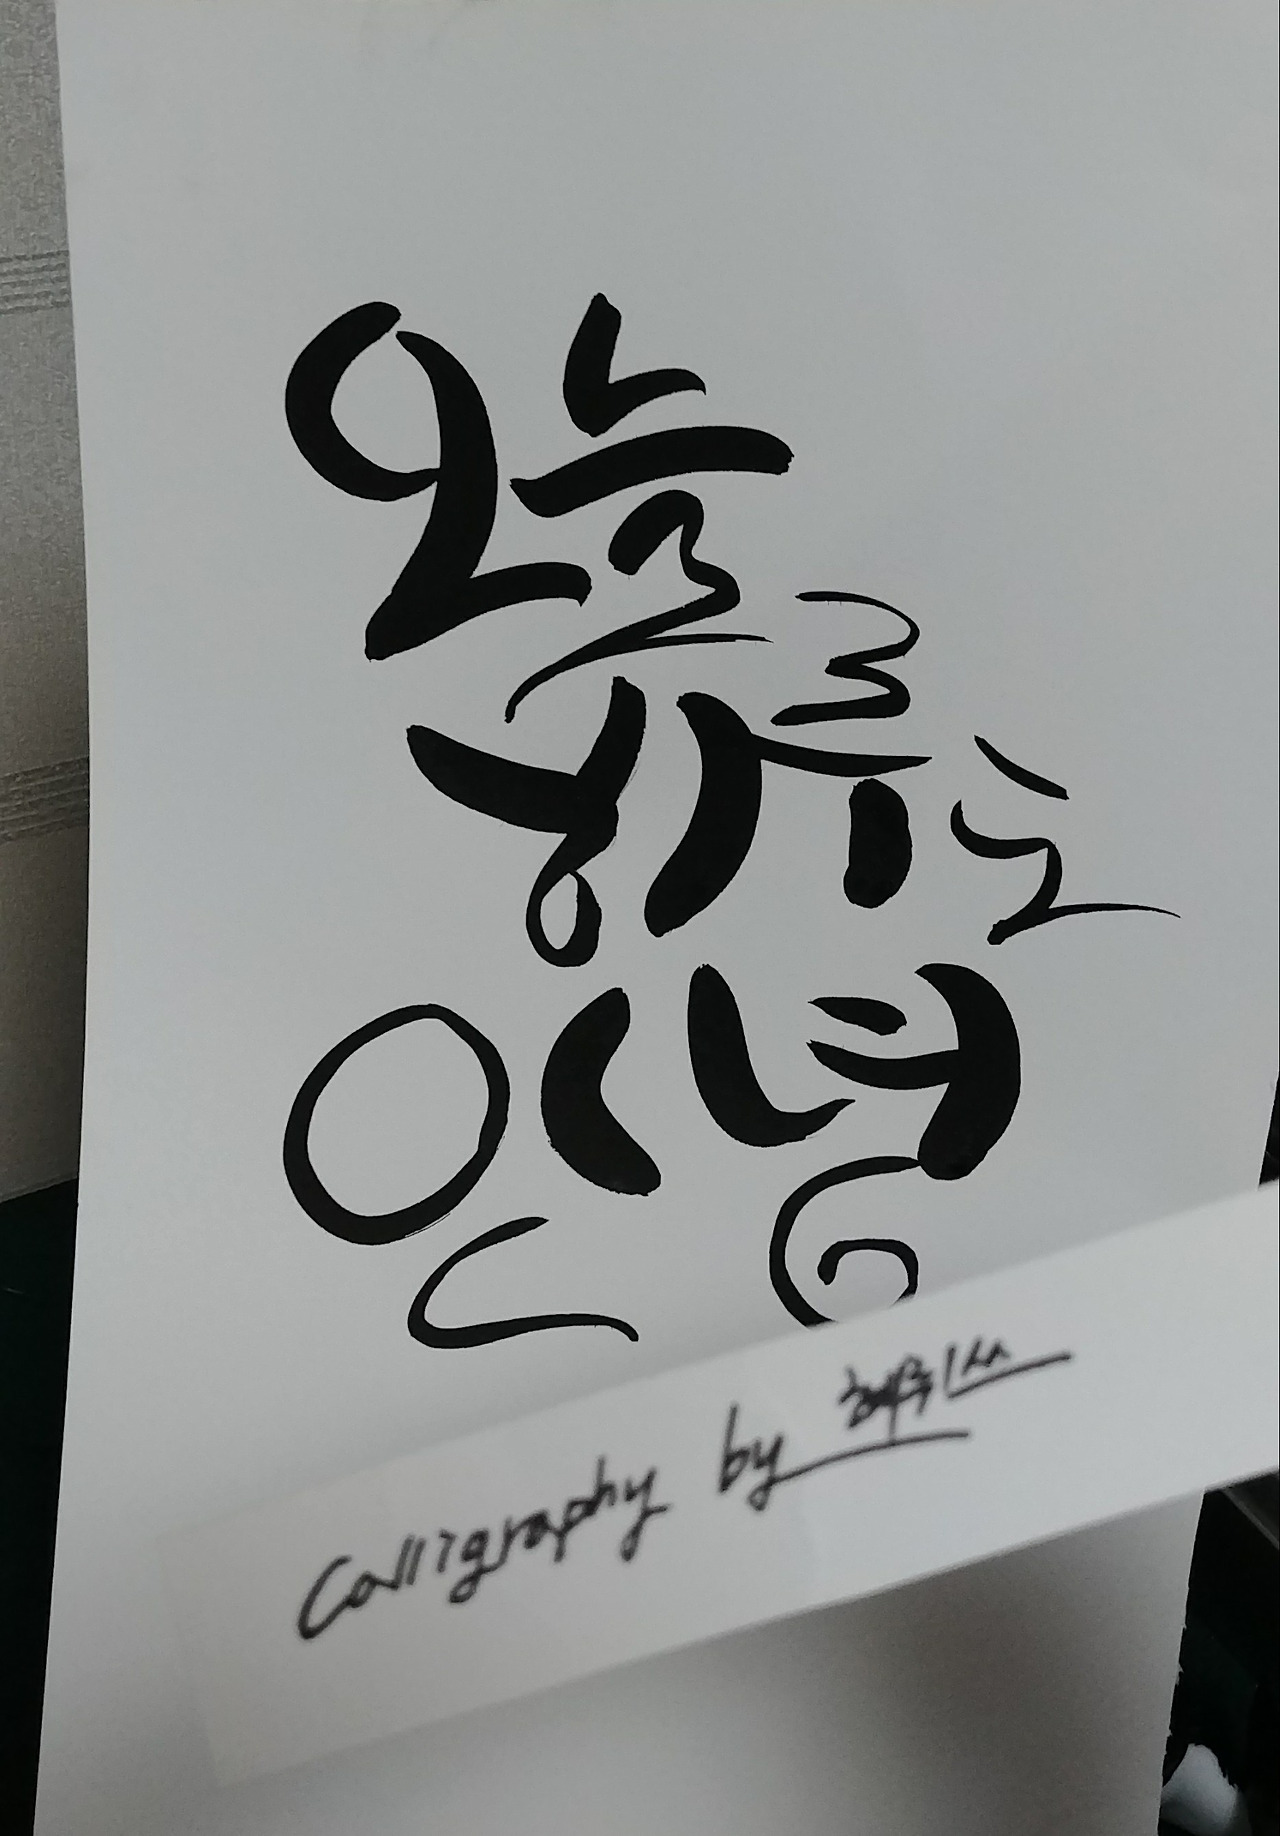 오늘
하루도
안녕
Calligraphy by